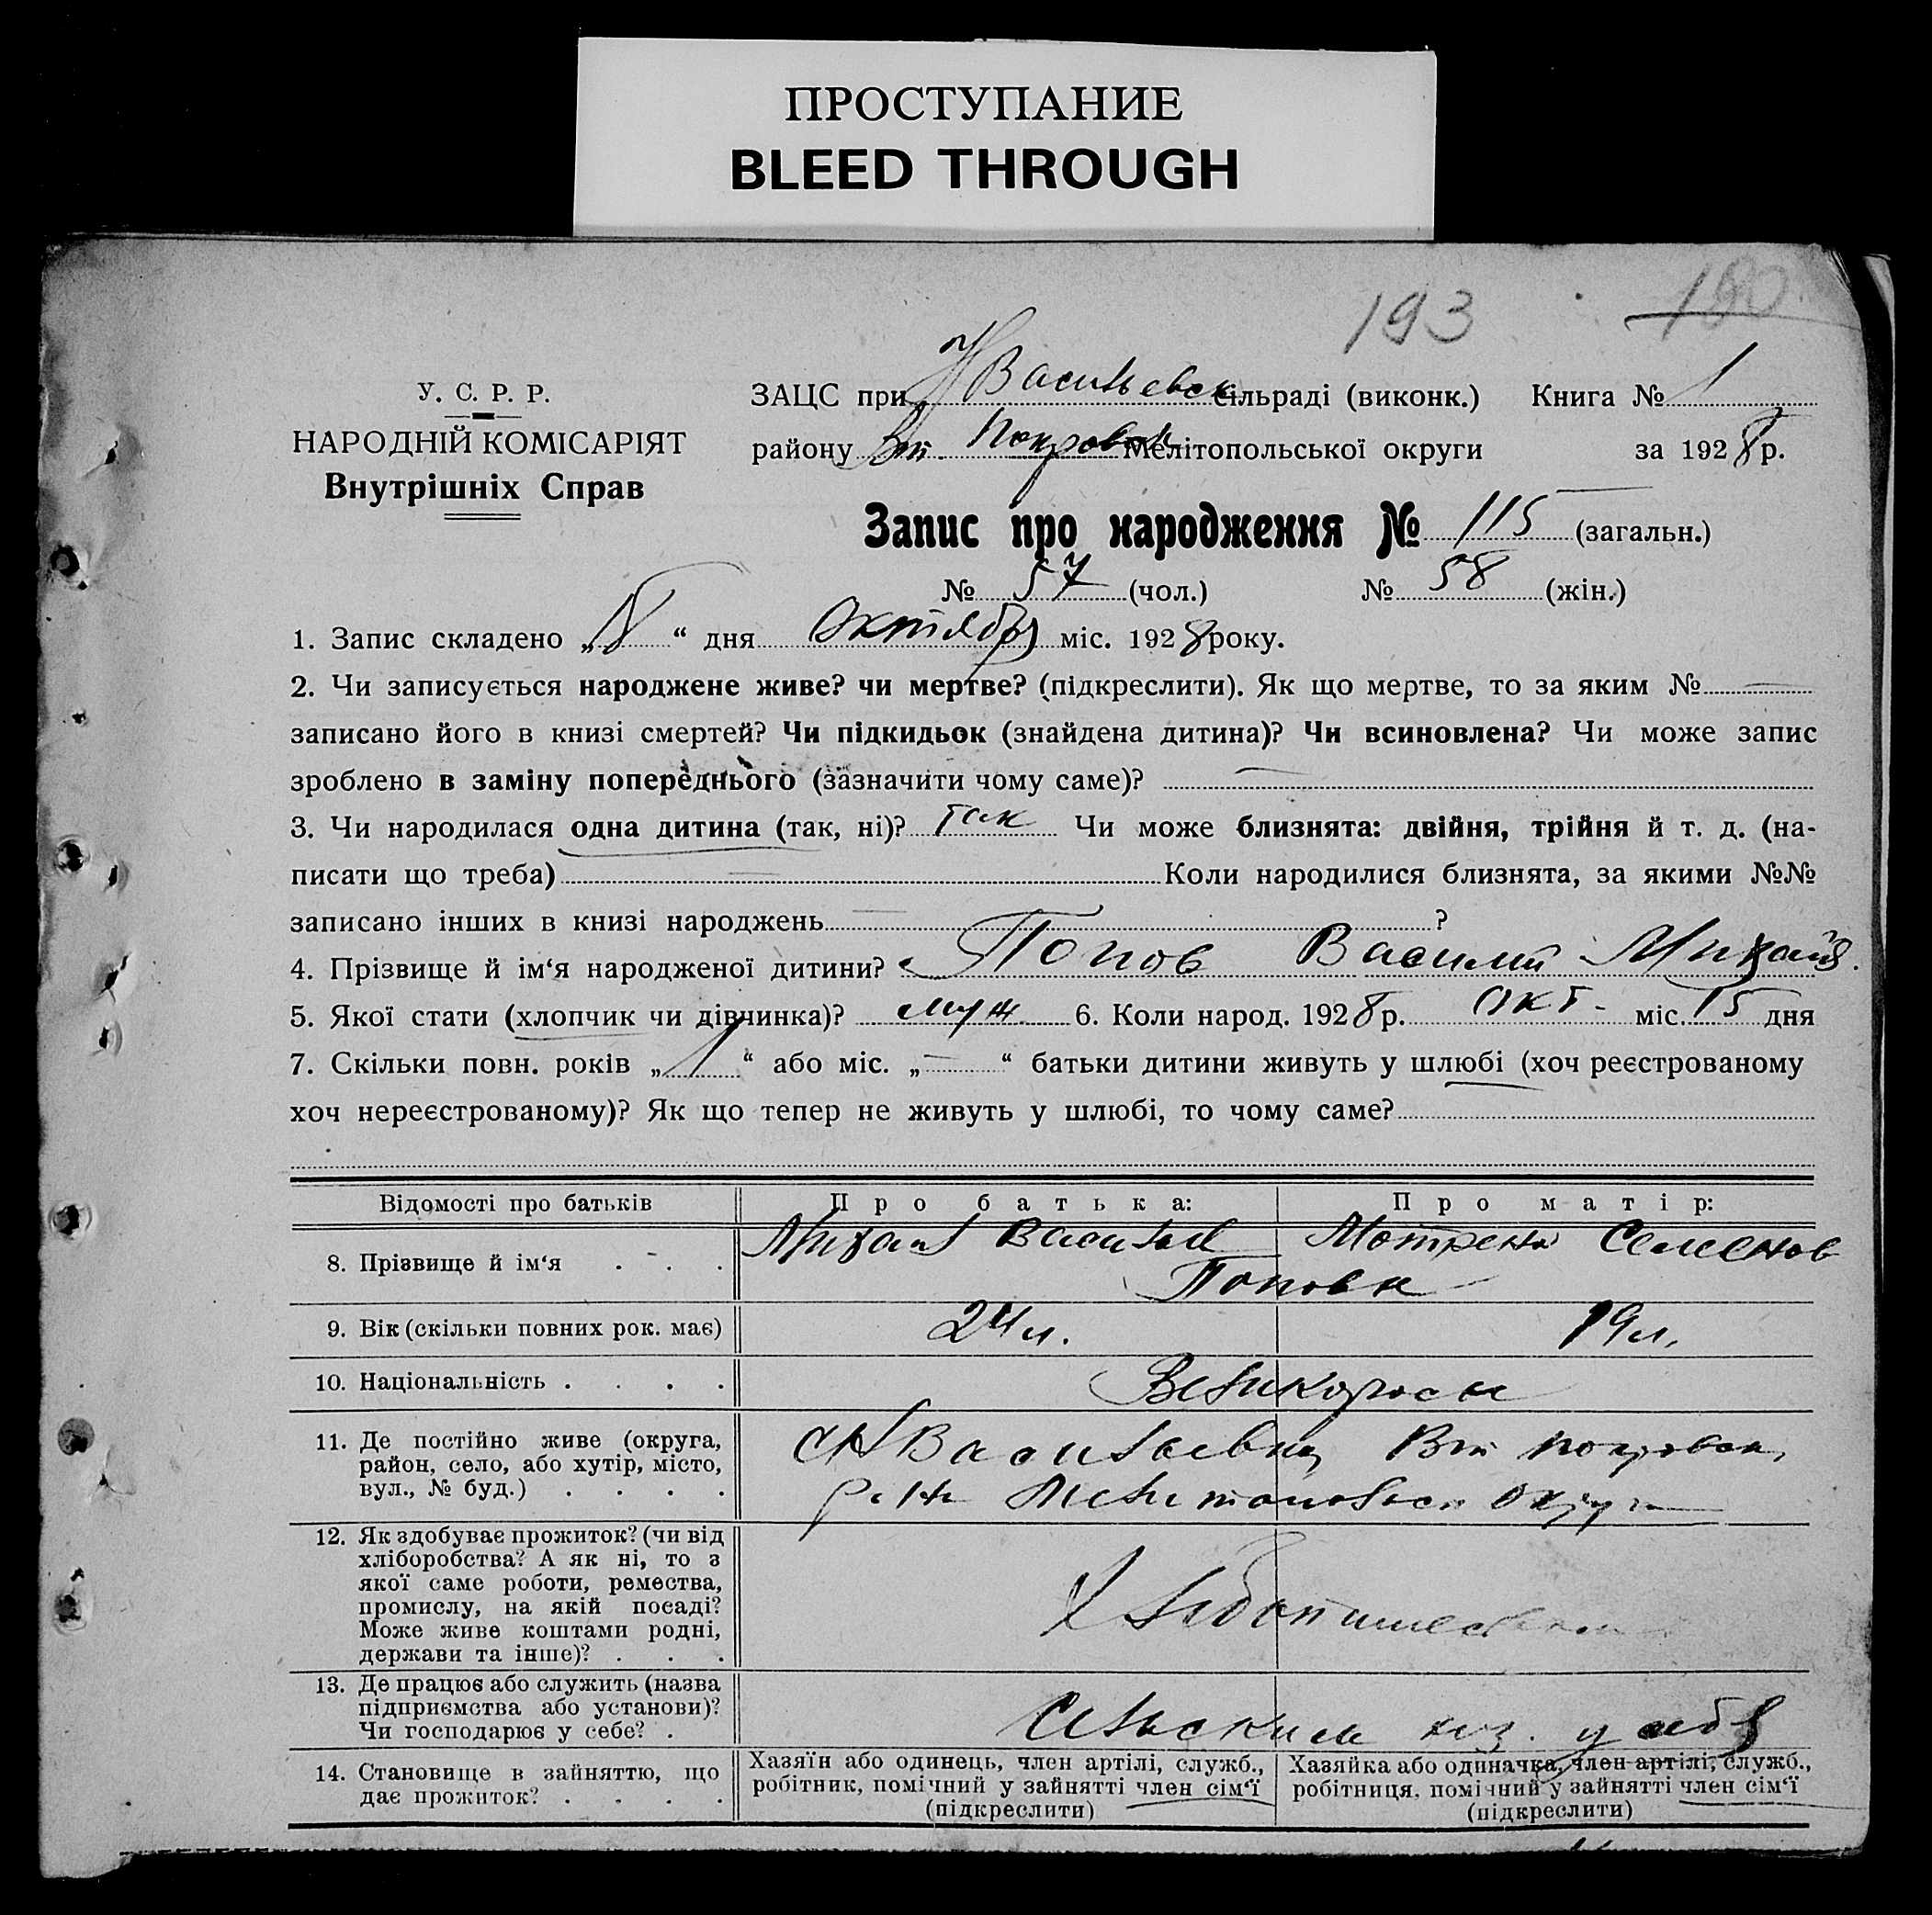 ПРОСТУПАНИЕ
BLEED THROUGH
193
У. С. Р. Р.
НАРОДНІЙ КОМІСАРІЯТ
Внутрішніх Справ
ЗАЦС при Н Васильевск сільраді (виконк.) Книга № 1
району Вт. Покровск Мелітопольської округи за 1928 р.
Запис про народження № 115 (загальн.)
№ 57 (чол.) № 58 (жін.)
1. Запис складено „ “ дня Октября міс. 1928 року.
2. Чи записується народжене живе? чи мертве? (підкреслити). Як що мертве, то за яким №
записано його в книзі смертей? Чи підкидьок (знайдена дитина)? Чи всиновлена? Чи може запис
зроблено в заміну попереднього (зазначити чому саме)?
3. Чи народилася одна дитина (так, ні)? так Чи може близнята: двійня, трійня й т. д. (на-
писати що треба) Коли народилися близнята, за якими №№
записано інших в книзі народжень ?
4. Прізвище й ім‘я народженої дитини? Попов Василий Михайл.
5. Якої стати (хлопчик чи дівчинка)? муж 6. Коли народ. 1928 р. Окт. міс. 15 дня
7. Скільки повн. років „ 1 “ або міс. „ — “ батьки дитини живуть у шлюбі (хоч реєстрованому
хоч нереєстрованому)? Як що тепер не живуть у шлюбі, то чому саме?
Відомості про батьків Про батька: Про матір:
8. Прізвище й ім‘я Михаил Васильев Мотрена Семенов
Поповы
9. Вік (скільки повних рок. має) 24 л. 19 л.
10. Національність Великоросы
11. Де постійно живе (округа,
район, село, або хутір, місто,
вул., № буд.)
с Н Васильевка Вт Покровск,
р-на Мелитопольск Округа
12. Як здобуває прожиток? (чи від
хліборобства? А як ні, то з
якої саме роботи, ремества,
промислу, на якій посаді?
Може живе коштами родні,
держави та інше)?
Хлебопашеством
13. Де працює або служить (назва
підприємства або установи)?
Чи господарює у себе?
Сельским хоз. у себя
14. Становище в зайняттю, що
дає прожиток?
Хазяїн або одинець, член артілі, служб.,
робітник, помічний у зайнятті член сім‘ї
(підкреслити)
Хазяйка або одиначка, член артілі, служб.,
робітниця, помічний у зайнятті член сім‘ї
(підкреслити)